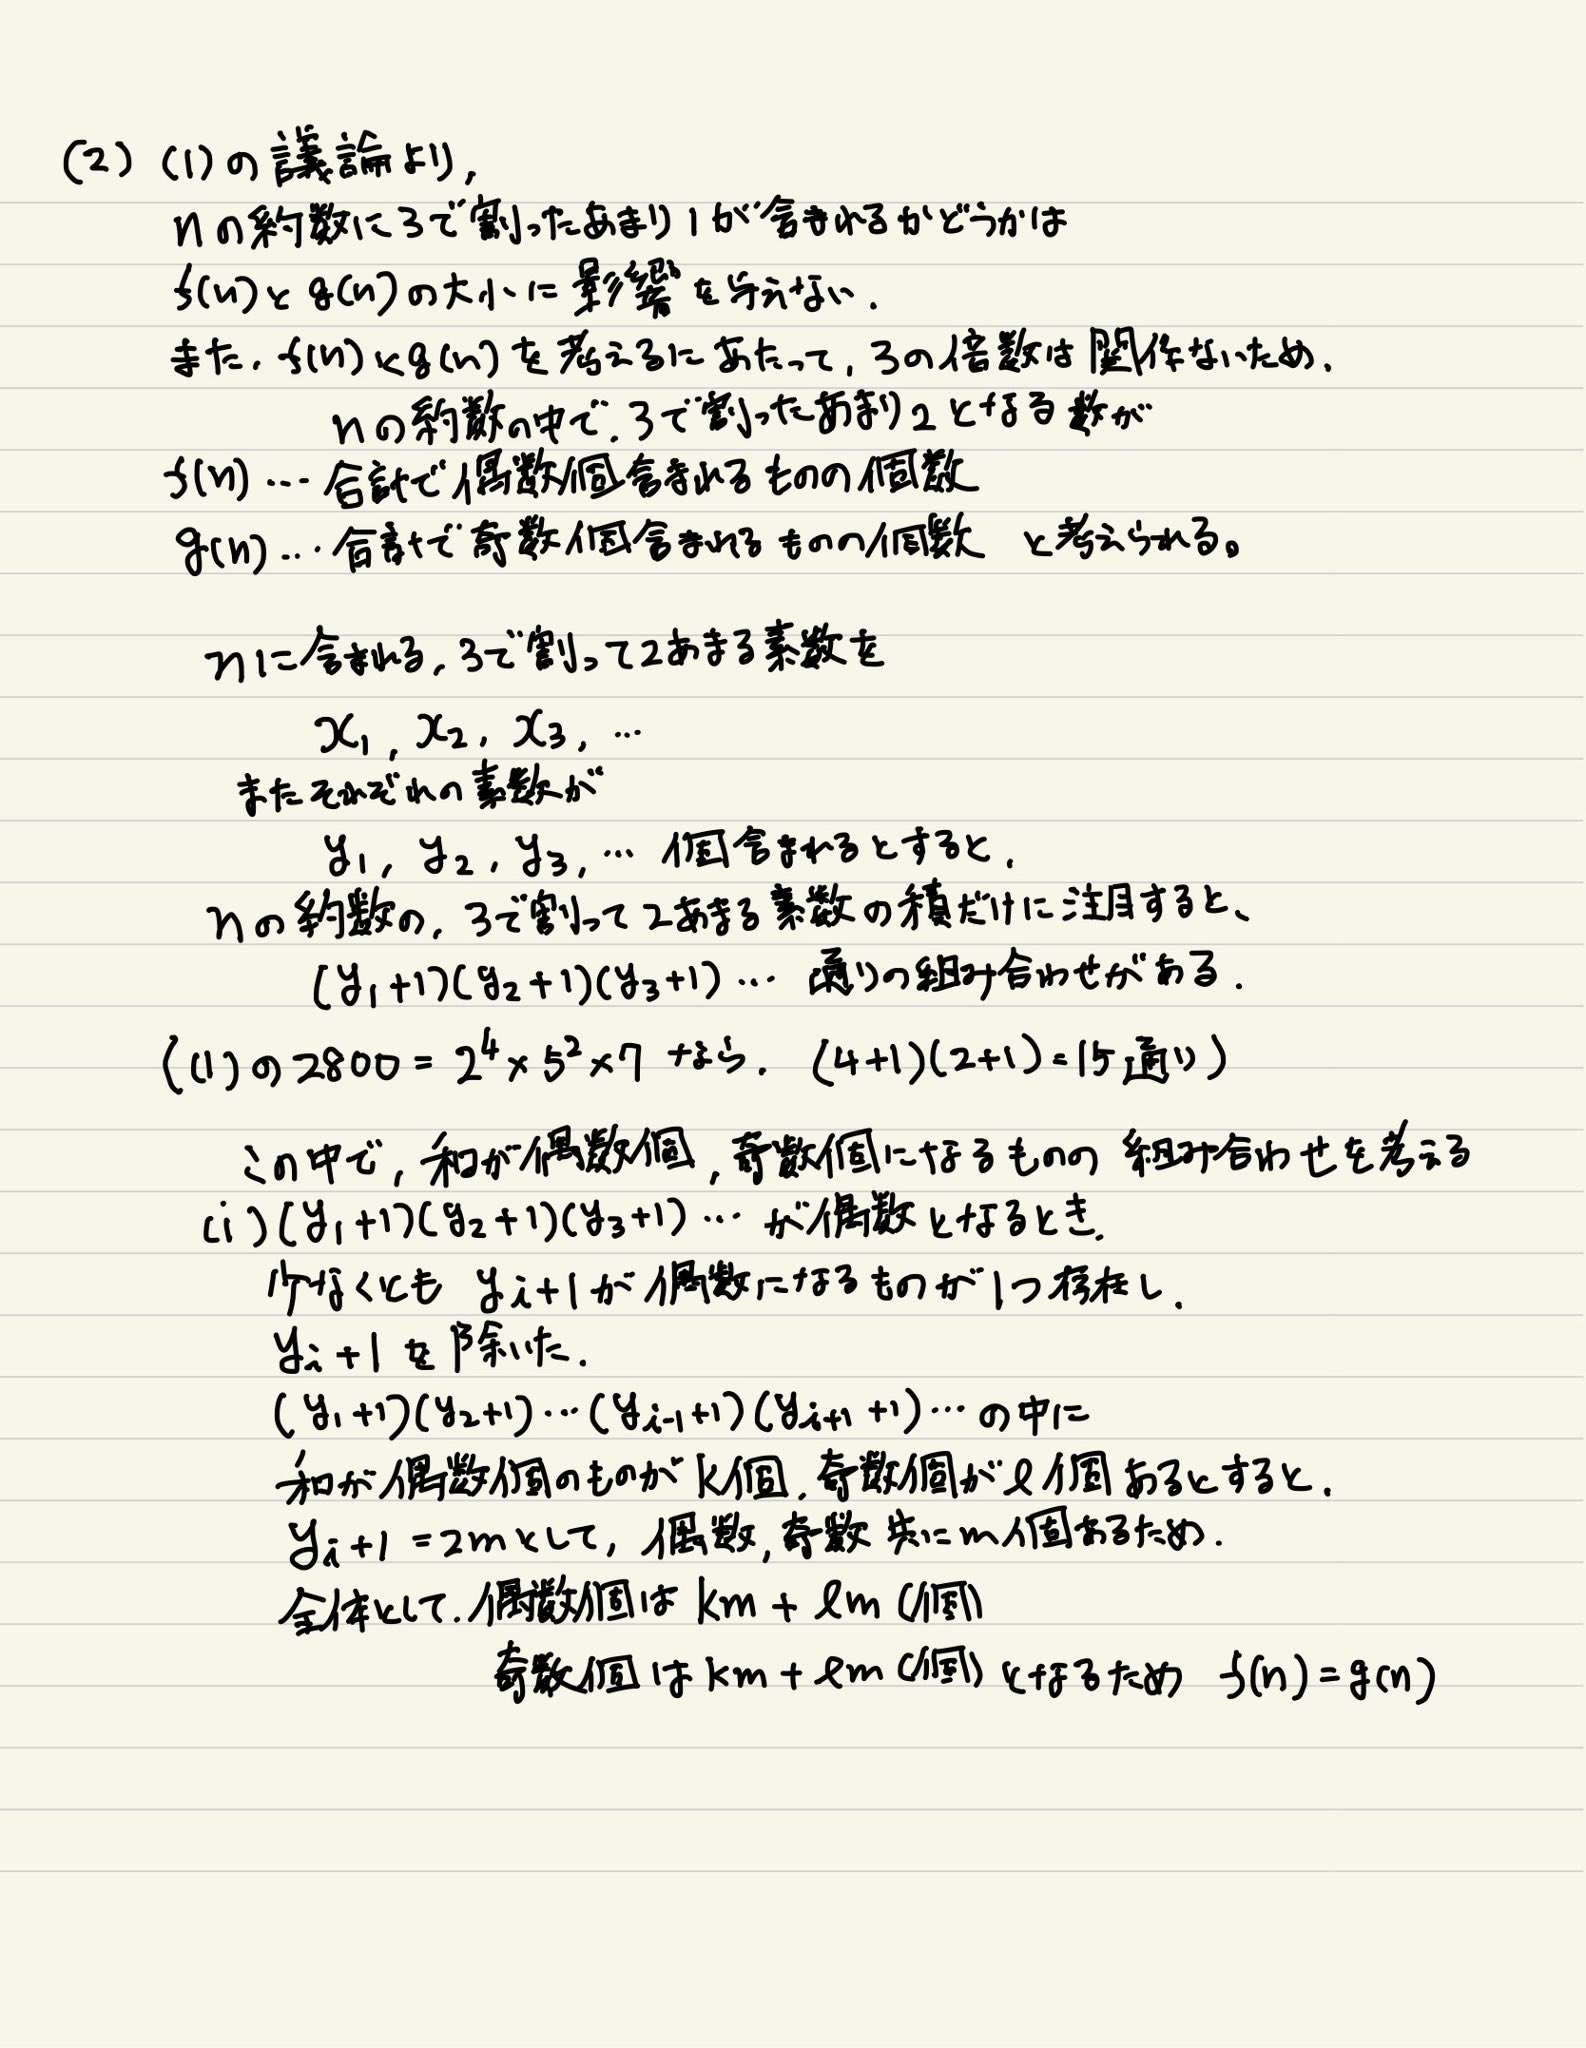 (2) (1)の議論より,
nの約数に3で割ったあまり1が含まれるかどうかは
f(n)とg(n)の大小に影響を与えない.
また, f(n)とg(n)を考えるにあたって, 3の倍数は関係ないため.
nの約数の中で. 3で割ったあまり2となる数が
f(n) … 合計で偶数個含まれるものの個数
g(n) … 合計で奇数個含まれるものの個数 と考えられる。
nに含まれる, 3で割って2あまる素数を
x₁, x₂, x₃, …
またそれぞれの素数が
y₁, y₂, y₃, … 個含まれるとすると,
nの約数の, 3で割って2あまる素数の積だけに注目すると、
(y₁+1)(y₂+1)(y₃+1) … 通りの組み合わせがある.
((1)の2800 = 2⁴×5²×7 なら. (4+1)(2+1)=15通り)
この中で, 和が偶数個, 奇数個になるものの 組み合わせを考える
(i) (y₁+1)(y₂+1)(y₃+1) … が偶数となるとき.
少なくとも yᵢ+1が偶数になるものが1つ存在し.
yᵢ+1 を除いた.
(y₁+1)(y₂+1)…(yᵢ₋₁+1)(yᵢ₊₁+1)… の中に
和が偶数個のものがk個, 奇数個がℓ個あるとすると.
yᵢ+1=2mとして, 偶数, 奇数 共にm個あるため.
全体として. 偶数個は km + ℓm (個)
奇数個は km + ℓm (個) となるため f(n) = g(n)